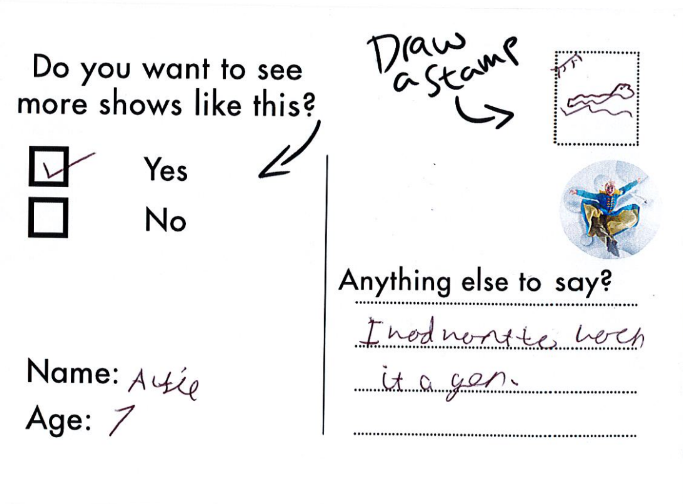 Do you want to see
more shows like this?
Yes
No
Name: Alfie
Age: 7
Draw
a stamp
Anything else to say?
I
it a gen.